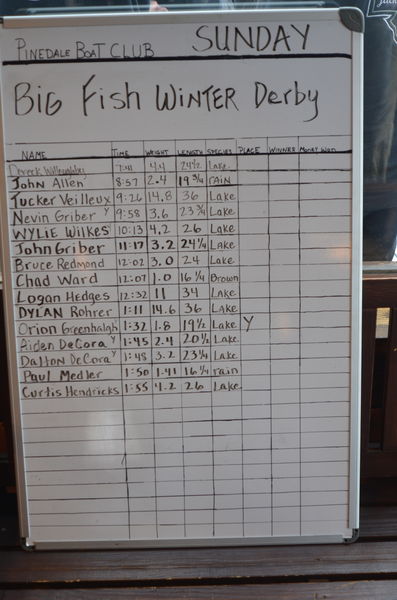 PINEDALE BOAT CLUB SUNDAY
BIG FISH WINTER Derby
NAME TIME WEIGHT LENGTH SPECIES PLACE WINNER Money Won
Dereck Willoughby 7:41 4.4 24½ Lake
John Allen 8:57 2.4 19¾ rAin
Tucker Veilleux 9:26 14.8 36 Lake
Nevin Griber Y 9:58 3.6 23¾ Lake
WYLIE WILKES 10:13 4.2 26 Lake
John Griber 11:17 3.2 24¼ Lake
Bruce Redmond 12:02 3.0 24 Lake
Chad Ward 12:07 1.0 16¼ Brown
Logan Hedges 12:32 11 34 Lake
DYLAN Rohrer 1:11 14.6 36 Lake
Orion Greenhalgh 1:32 1.8 19½ Lake Y
Aiden DeCora Y 1:45 2.4 20½ Lake
Dalton DeCora Y 1:48 3.2 23¼ Lake
Paul Medler 1:50 1.41 16¼ rain
Curtis Hendricks 1:55 4.2 26 Lake